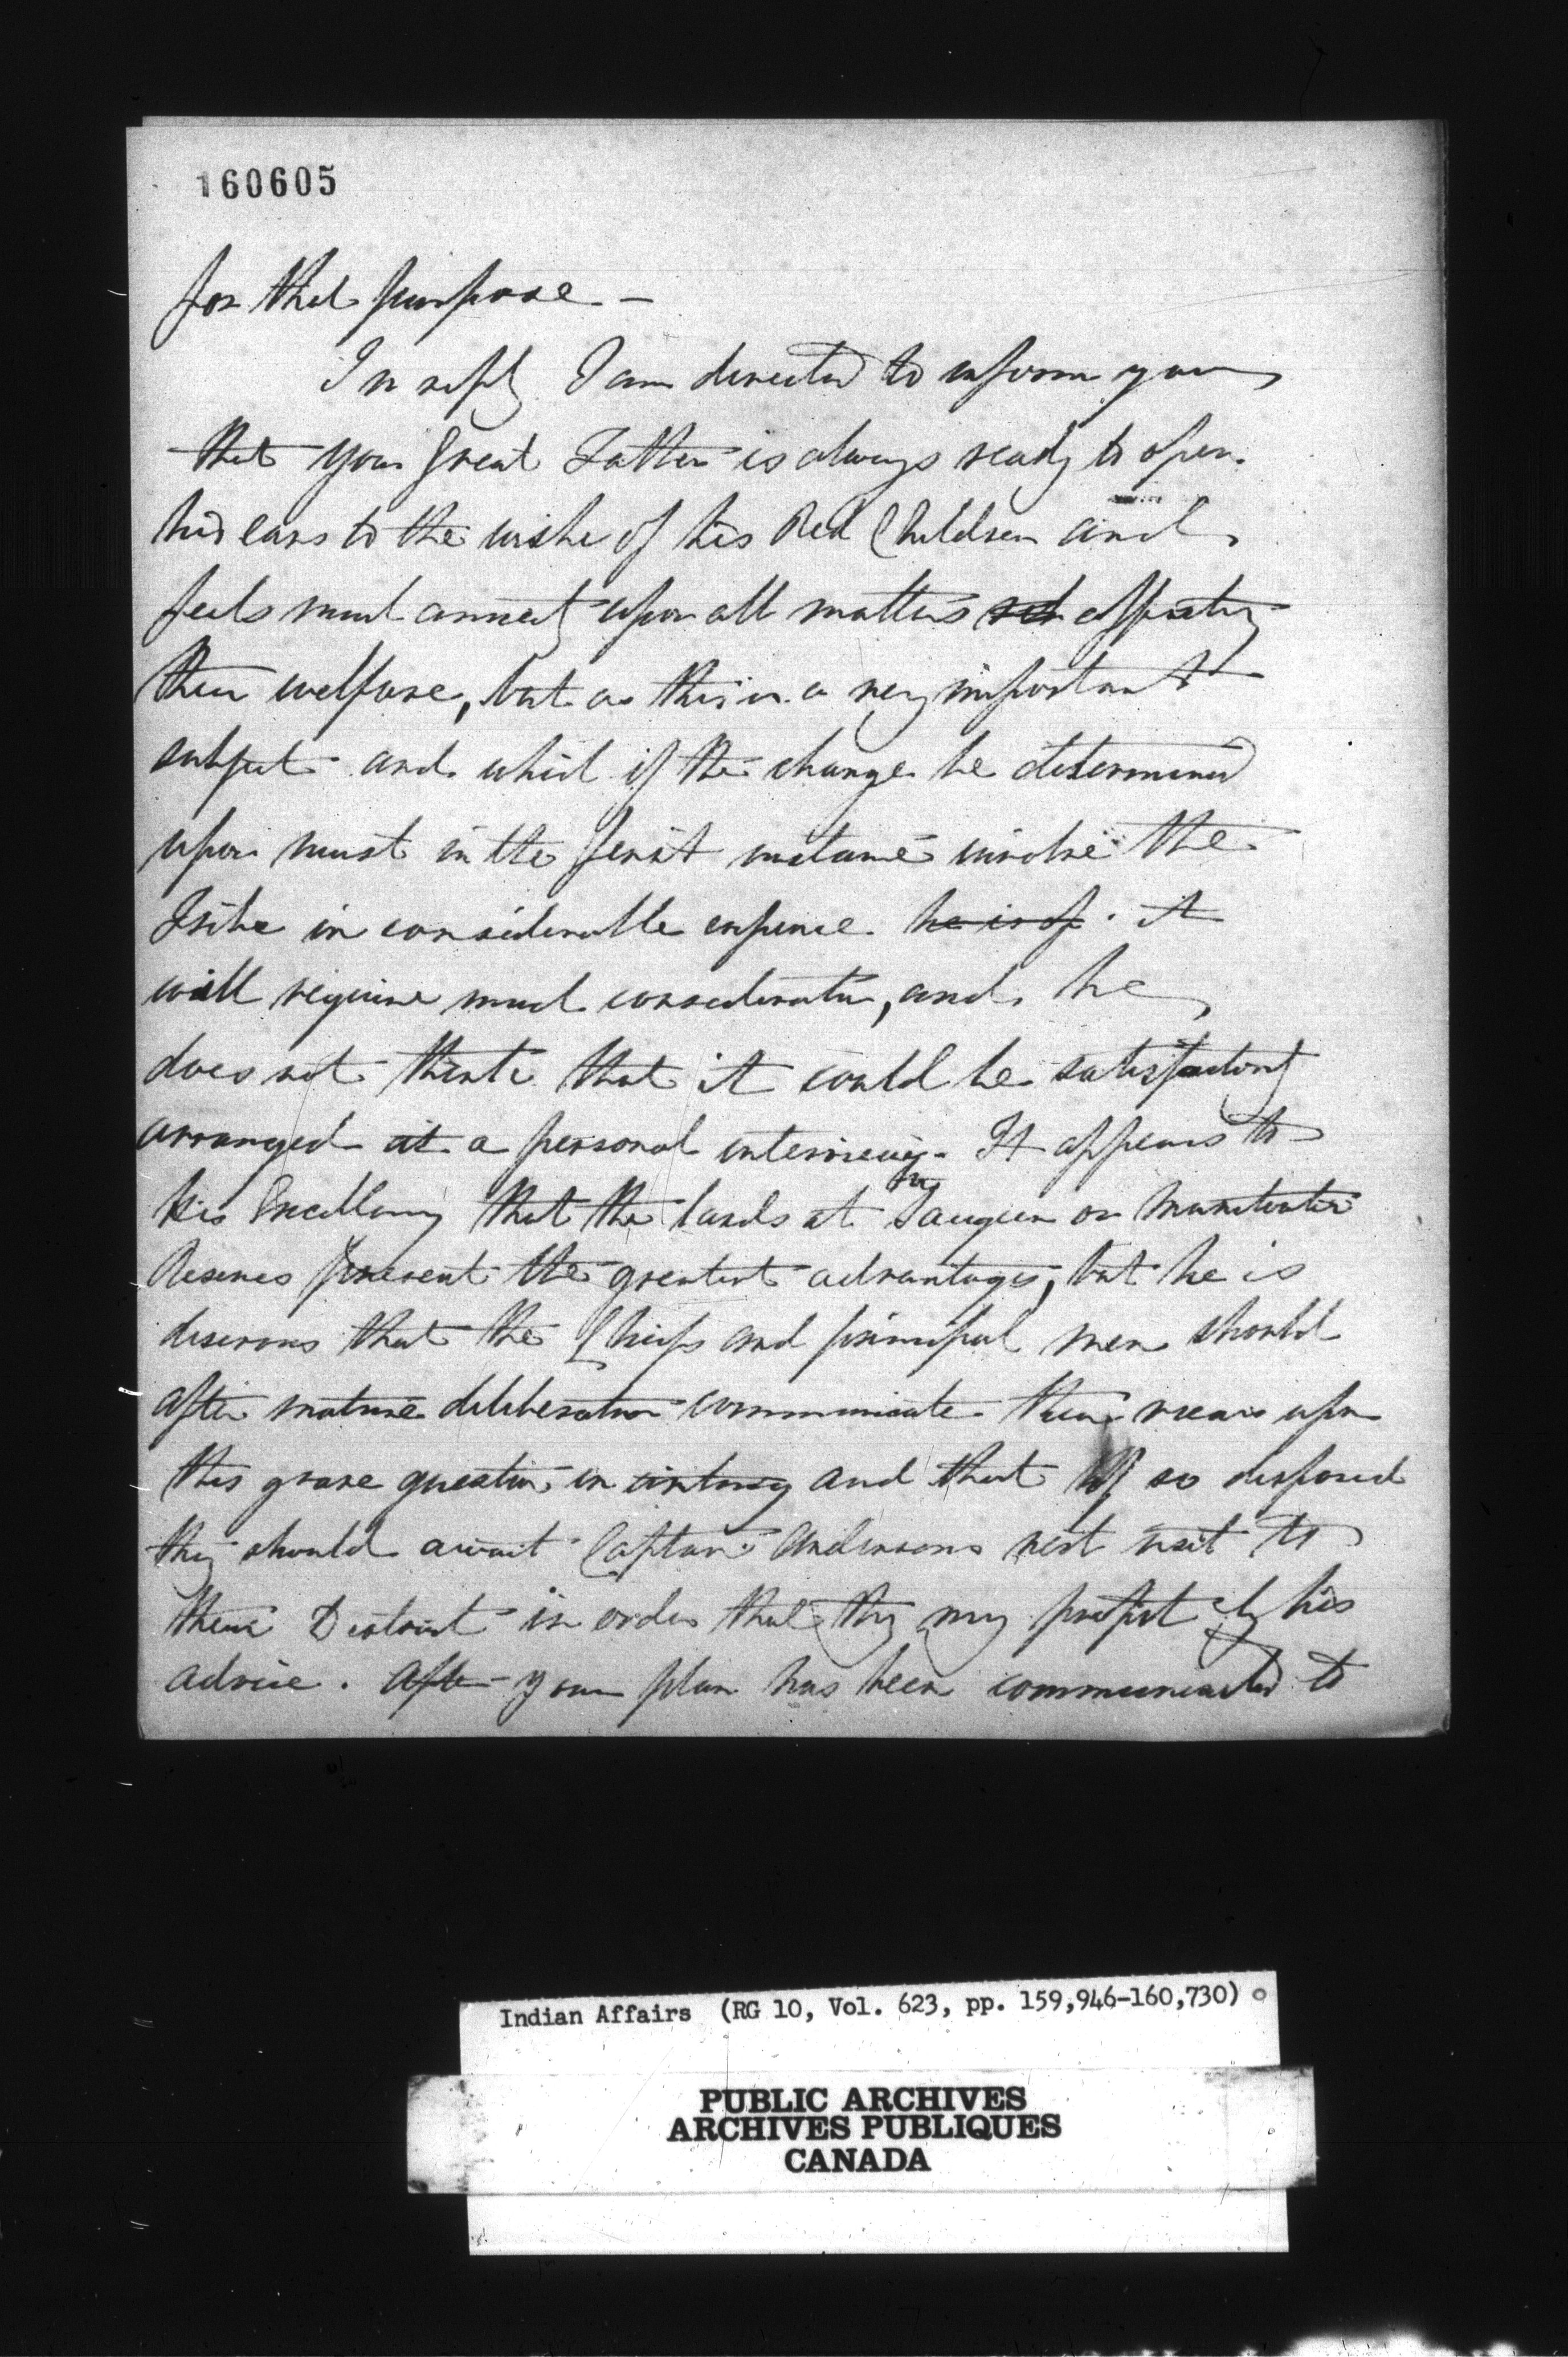 160605
for that purpose –
In reply I am directed to inform you
that your Great Father is always ready to open
his ears to the wishe of his Red Children and
feels much upon all matters affecting
their welfare, but as this is a very important
subject and which if the change be determined
upon must in the first instance involve the
Tribe in considerable expense he is of. it
will require much consideration, and he
does not think that it could be satisfactory
arranged at a personal interview. It appears to
His Excellency that the lands at Saugeen or Manitoulin
Reserves present the greatest advantages, but he is
desirous that the Chiefs and principal men should
after mature deliberation communicate their views upon
this grave question in and that if so disposed
they should await Captain Andersons next visit to
their District in order that they may profit by his
advice. After your plan has been communicated to
Indian Affairs (RG 10, Vol. 623, pp. 159,946-160,730)
PUBLIC ARCHIVES
ARCHIVES PUBLIQUES
CANADA